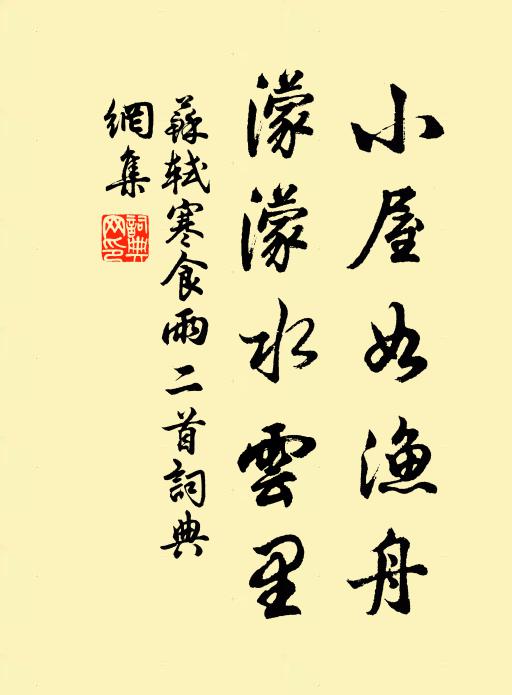 小屋如漁舟
濛濛水雲里
蘇軾寒食雨二首詞典
網集
詞典網印